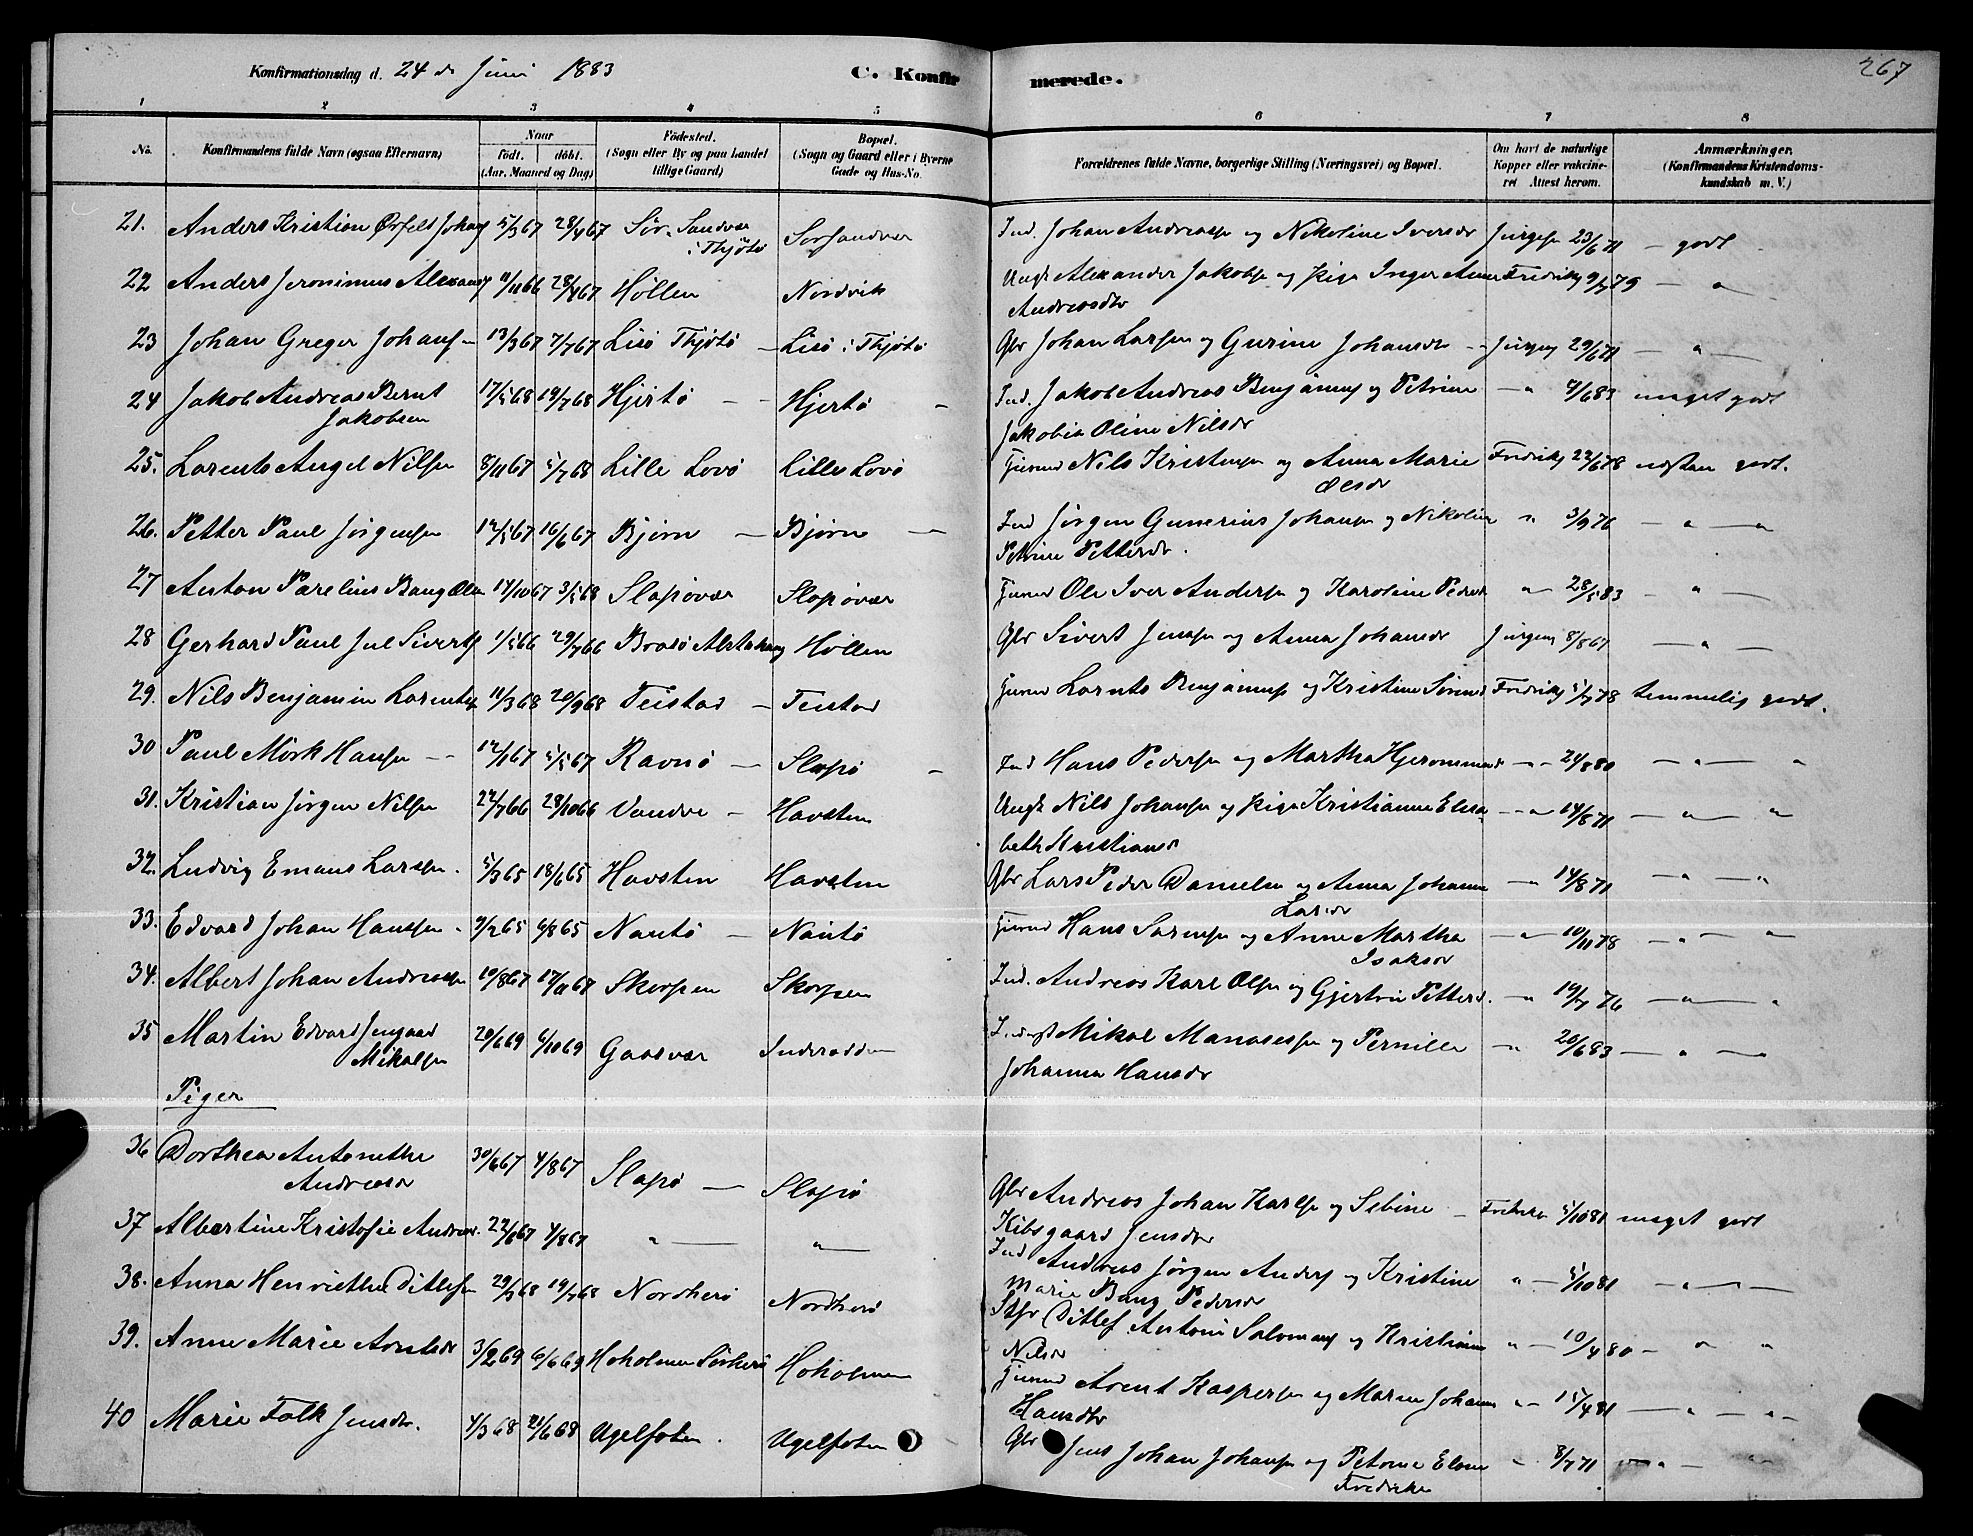 Konfirmationsdag d. 24 de Juni 1883 C. Konfirmerede. 267
1 2 3 4 5 6 7 8
No. Konfirmandens fulde Navn (ogsaa Efternavn) Naar født. døbt. (Aar, Maaned og Dag) Födested. (Sogn eller By og paa Landet tillige Gaard) Bopæl. (Sogn og Gaard eller i Byerne Gade og Hus-No. Forældrenes fulde Navne, borgerlige Stilling (Næringsvei) og Bopæl. Om havt de naturlige Kopper eller vakcineret Attest herom. Anmærkninger. (Konfirmandens Kristendomskundskab m. V.)
21. Anders Kristian Ørfelt Johans 5/3 67 28/4 67 Sör. Sandvær i Thjötö Sörsandvær Ind. Johan Andreasen og Nikoline Iversdr Jürgens 23/6 71 – godt
22 Anders Jeronimus Alexans 11/11 66 28/4 67 Höllen Nordvik Ungk Alexander Jakobsen og Pige Inger Anne Fredriks 9/7 79 – " –
Andreasdtr
23 Johan Greger Johansen 13/3 67 7/7 67 Lisö Thjötö – Lisö i Thjötö Gbr Johan Larsen og Gurine Johansdr – Jürgens 29/6 71 – " –
24 Jakob Andreas Bernt 17/5 68 19/7 68 Hjertö – Hjertö – Ind. Jakob Andreas Benjamins og Petrine – " 4/6 83 meget godt
Jakobsen Jakobia Oline Nilsdr
25. Lorents Angel Nilsen 8/11 67 5/7 68 Lille Lovö Lille Lovö Gmd Nils Kristensen og Anna Marie Fredriks 22/6 78 næsten godt.
Olsdr
26. Petter Paul Jörgensen 12/5 67 16/6 67 Bjørn – Bjørn – Ind Jörgen Gunerius Johansen og Nikoline " 3/9 76 – " – "
Petrine Pettersdr.
27 Anton Parelius Bang Olsen 14/10 67 3/5 68 Slapövær Slapövær Ole Iver Andersen og Karoline Pedersdr – " – 28/5 83 – " –
28 Gerhard Paul Jul Siverts 1/5 66 29/7 66 Brasö Alstahaug Höllen Gbr Sivert Jensen og Anna Johansdr Jürgens 8/8 67 – " –
29. Nils Benjamin Lorentsen 11/3 68 20/9 68 Teistad – Teistad Lornts Benjamins og Kristine Sörensd Fredriks 5/7 78 temmelig godt.
30 Paul Mörk Hansen – 12/1 67 5/5 67 Ravnö – Slapö – Ind Hans Pedersen og Martha Hjeronimusd – " – 24/8 80 – " – "
31. Kristian Jörgen Nilsen 22/7 66 28/10 66 Vandve – Havsten Ungk Nils Johansen og Pige Kristianne Elisa- – " 14/8 71 – " – "
beth Kristiansd
32. Ludvig Emaus Larsen. 5/3 65 18/6 65 Havsten Havsten Gbr Lars Peder Danielsen og Anna Johanna – " – 14/8 71 – " – "
Larsdr
33. Edvard Johan Hansen. 9/2 65 6/8 65 Nautö – Nautö Hans Sörensen og Anne Martha – " – 10/11 78 – " – "
Isaksdr
34. Albert Johan Andreassen 10/8 67 17/11 67 Skorpen Skorpen Ind. Andreas Karl Olsen og Gjertrin Petters. – " 19/7 76 – " – "
35 Martin Edvard 20/6 69 6/10 69 Gaasvær Inderodden Mikal Manasesen og Pernille – " 20/6 83 – " –
Mikalsen Johanna Hansdr
Piger
36 Dorthea Antonethe 30/6 67 4/8 67 Slapö – Slapö Gbr Andreas Johan Karlsen og Sebine – Fredriks 5/10 81 meget godt
Andreasdr Kibsgaard Jensdr
37 Albertine Kristofie Andreas. 22/6 67 4/8 67 " – " – Ind Andreas Jörgen Anders og Kristine " – 5/10 81 – " –
Marie Bang Pedersdr
38. Anna Henriethe Ditlefsen 29/3 68 19/7 68 Nordherö Nordherö Ditlef Antoni Salomons og Kristianne " – 10/4 80 – " "
Nilsdr
39. Anne Marie Arntsdr 3/2 69 6/6 69 Hoholmen Sörherö Hoholmen Arent Kaspersen og Maren Johanna – " 15/4 81 – " – "
Hansdtr
40 Marie Falk Jensdtr. 4/3 68 21/6 68 Ugelfoten. Ugelfoten Gbr Jens Johan Johansen og Petrine Elene " – 8/7 71 – " –
Fredrikke